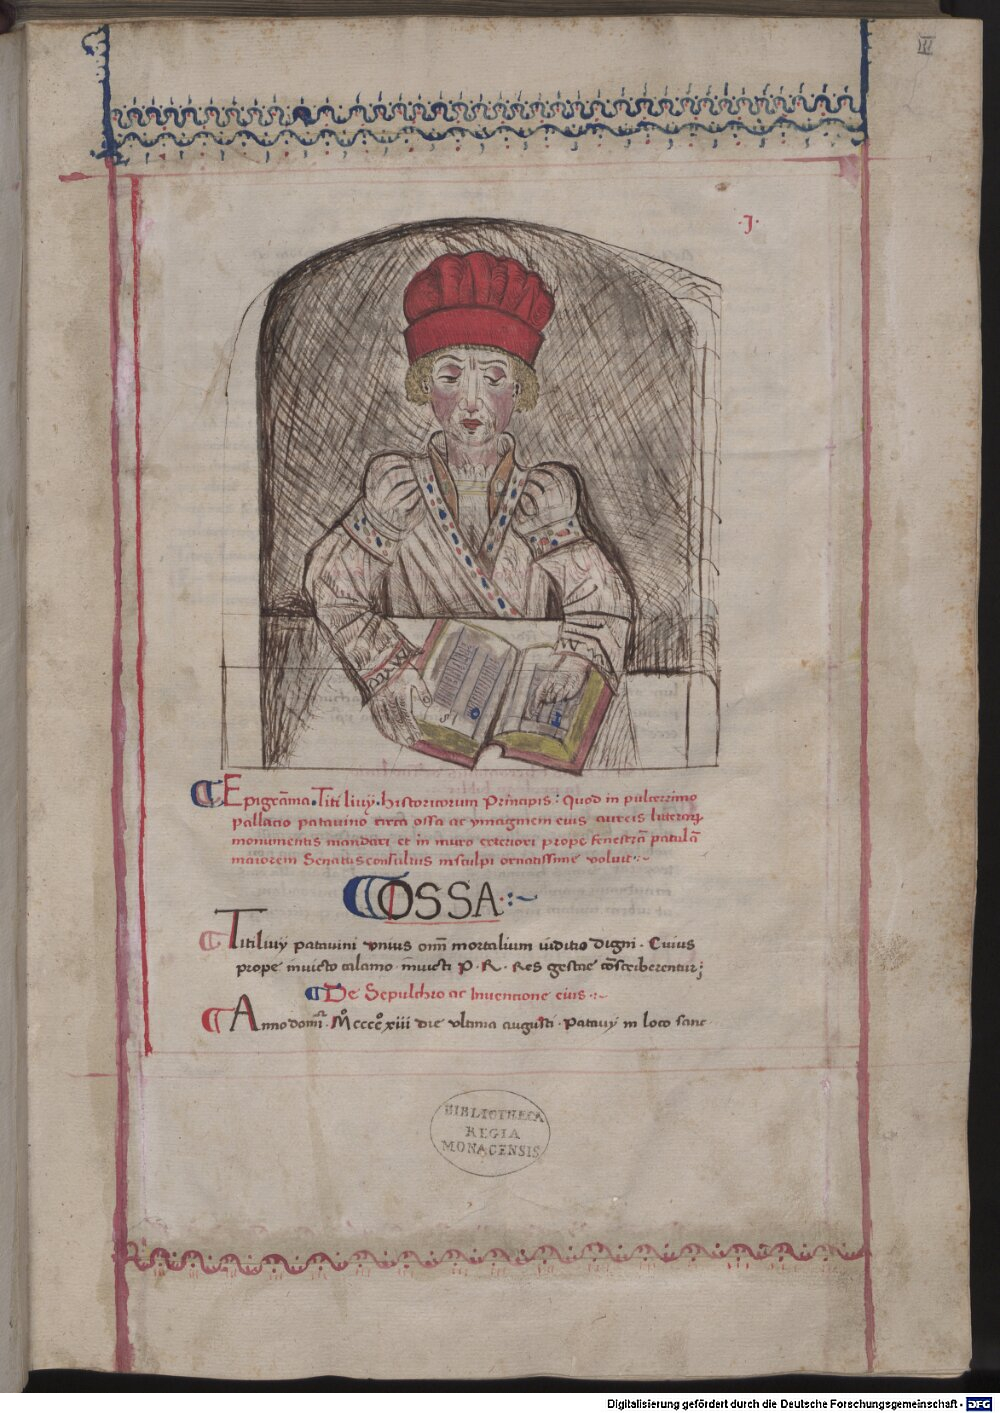 ·J·
Epigrãma · Titi liuÿ · historicorum Principis : Quod in pulcerrimo
pallacio patauino circa ossa ac ymaginem eius aureis literarȝ
monumentis mandari et in muro exteriori prope fenestrã patulã
maiorem Senatusconsultus insculpi ornatissime voluit :~
OSSA :~
Titiliuÿ patauini vnius om̄ mortalium iuditio digni · Cuius
prope inuicto calamo inuicti P · R · Res gestae cõscriberentur ;
De Sepulchro ac Inuentione eius :~
Anno domi · Mo cccco xiii die vltima augusti · Patauÿ in loco sanc
BIBLIOTHECA
REGIA
MONACENSIS
Digitalisierung gefördert durch die Deutsche Forschungsgemeinschaft - DFG